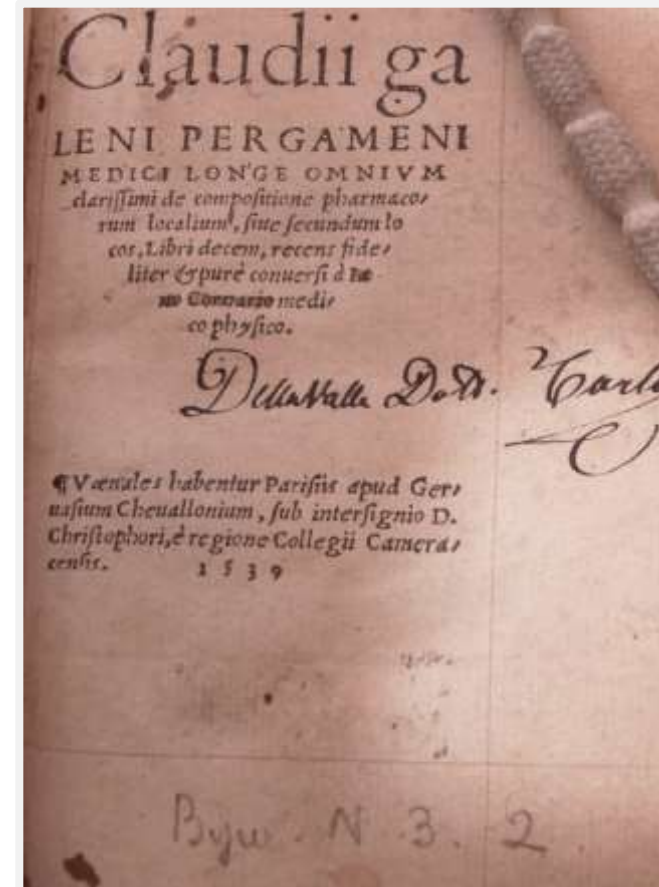 Claudii ga
LENI PERGAMENI
MEDICI LONGE OMNIVM
clarissimi de compositione pharmaco-
rum localium, siue secundum lo
cos, Libri decem, recens fide-
liter & purè conuersi à Ia
no Cornario medi-
co physico.
DellaValle Dott. Carlo
¶ Vaenales habentur Parisiis apud Ger-
uasium Cheuallonium, sub intersignio D.
Christophori, è regione Collegii Camera-
censis. 1539
N 3. 2